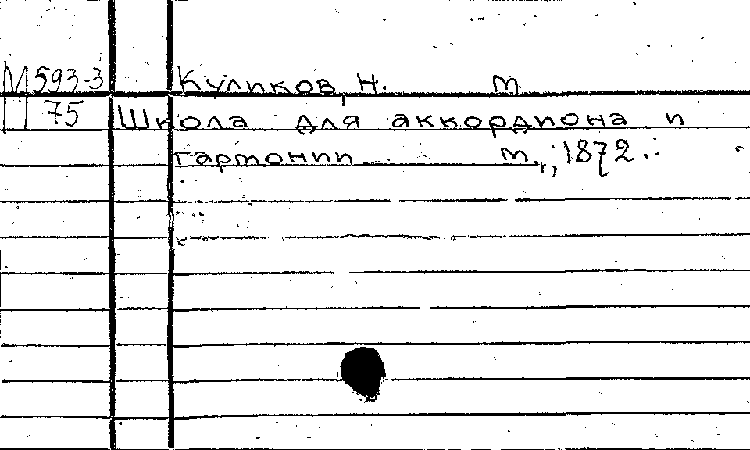 М 593-3 Куликов, Н. М
75 Школа для аккордиона и
гармонии М., 1872.